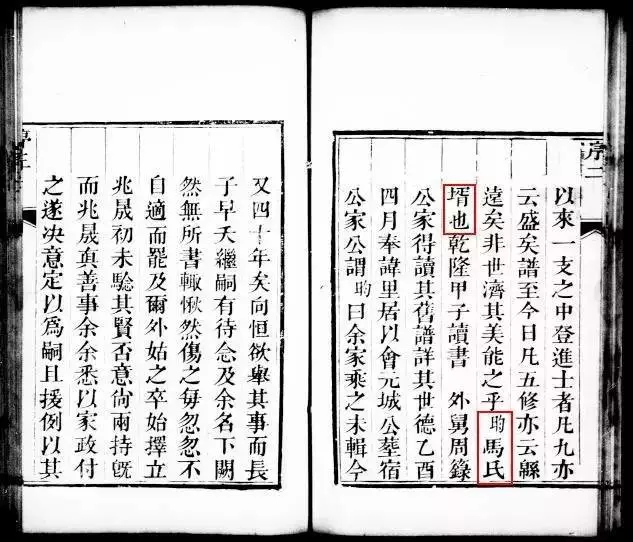 序二
以來一支之中登進士者凡九亦
云盛矣譜至今日凡五修亦云緜
遠矣非世濟其美能之乎昀馬氏
壻也乾隆甲子讀書 外舅周籙
公家得讀其舊譜詳其世德乙酉
四月奉諱里居以會元城公塟宿
公家公謂昀曰余家乘之未輯今
又四十年矣向恒欲舉其事而長
子早夭繼嗣有待念及余名下闕
然無所書輒愀然傷之每忽忽不
自適而罷及爾外姑之卒始擇立
兆晟初未驗其賢否意尚兩持旣
而兆晟真善事余余悉以家政付
之遂决意定以爲嗣且援例以其